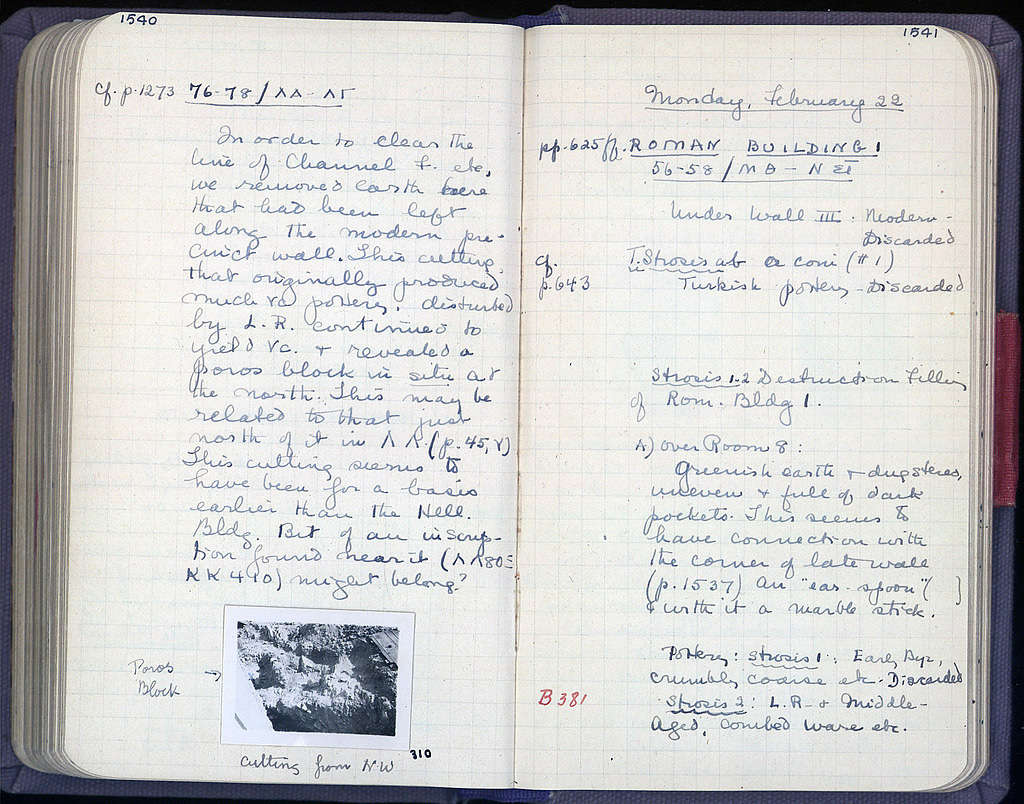 1540
cf. p. 1273 76-78/ΛΑ-ΛΓ
In order to clear the
line of Channel F. etc,
we removed earth here
that had been left
along the modern pre-
cinct wall. This cutting,
that originally produced
much vc pottery, disturbed
by L.R. continued to
yield vc. + revealed a
poros block in situ at
the north. This may be
related to that just
north of it in ΛΛ (p. 45, γ)
This cutting seems to
have been for a basis
earlier than the Hell.
Bldg. Bit of an inscrip-
tion found near it (ΛΛ80Ξ
KK 410) might belong?
Poros →
Block
310
Cutting from NW
1541
Monday, February 22
pp. 625ff. ROMAN BUILDING 1
56-58/ΜΘ-Ν
Under Wall III. Modern-
Discarded
cf. T. Strosis ab a coin (#1)
p. 643 Turkish pottery - Discarded
Strosis 1-2 Destruction Filling
of Rom. Bldg 1.
A) over Room 8:
Greenish earth + dug stereo,
uneven + full of dark
pockets. This seems to
have connection with
the corner of late wall
(p. 1537) An "ear-spoon" ( )
+ with it a marble stick.
Pottery: Strosis 1: Early Byz,
crumbly coarse etc. Discarded
B 381 Strosis 2: L.R. + Middle-
Aged, Combed ware etc.